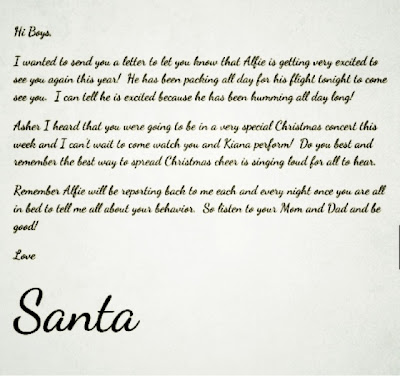 Hi Boys,
I wanted to send you a letter to let you know that Alfie is getting very excited to
see you again this year! He has been packing all day for his flight tonight to come
see you. I can tell he is excited because he has been humming all day long!
Asher I heard that you were going to be in a very special Christmas concert this
week and I can't wait to come watch you and Kiana perform! Do you best and
remember the best way to spread Christmas cheer is singing loud for all to hear.
Remember Alfie will be reporting back to me each and every night once you are all
in bed to tell me all about your behavior. So listen to your Mom and Dad and be
good!
Love
Santa